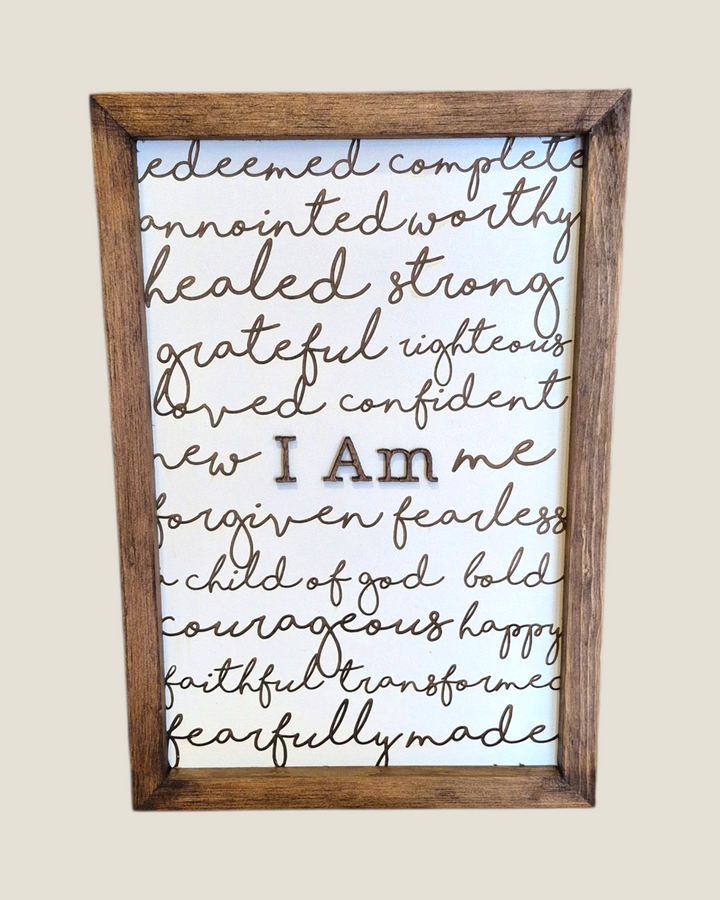 redeemed complete
annointed worthy
healed strong
grateful righteous
loved confident
new I Am me
forgiven fearless
a child of god bold
courageous happy
faithful transformed
fearfully made